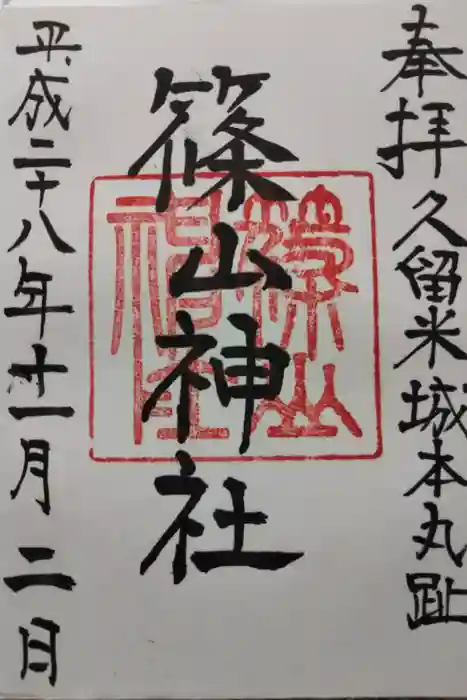 奉拝 久留米城本丸趾
篠山神社
篠山神社
平成二十八年十一月二日